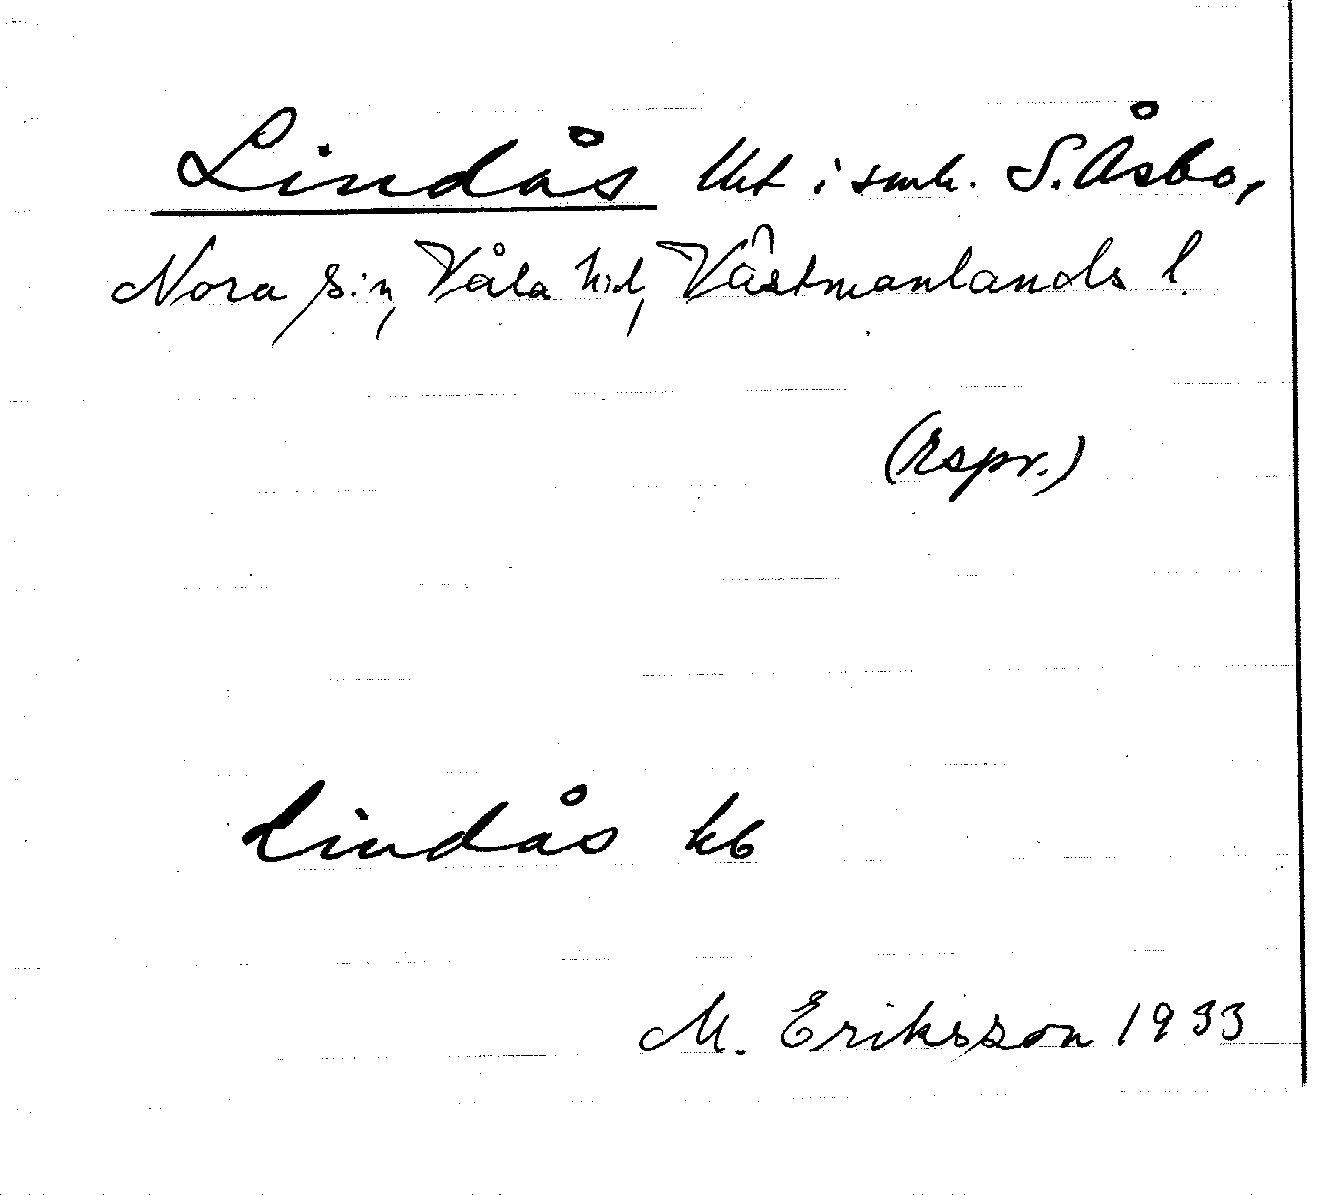 Lindås lht i smh. S. Åsbo,
Nora s:n, Våla hd, Västmanlands l.
(rspr.)
Lindås kb
M. Eriksson 1933